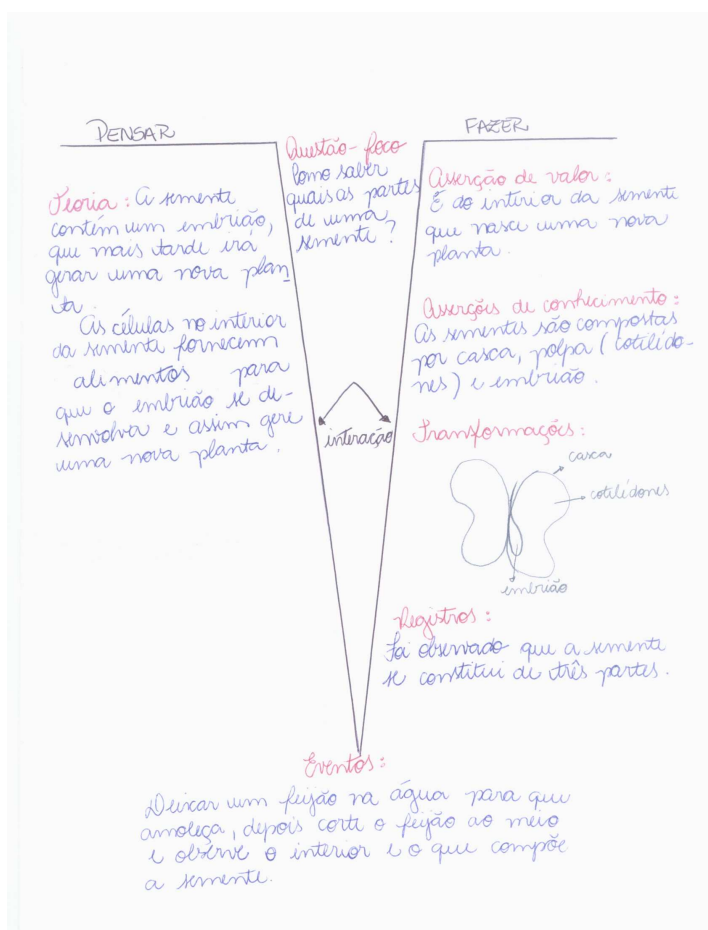 PENSAR
Teoria: A semente
contém um embrião,
que mais tarde irá
gerar uma nova plan
ta.
As células no interior
da semente fornecem
alimentos para
que o embrião se de-
senvolva e assim gere
uma nova planta.
Questão-foco
Como saber
quais as partes
de uma
semente?
interação
FAZER
Asserção de valor:
É do interior da semente
que nasce uma nova
planta.
Asserções de conhecimento:
As sementes são compostas
por casca, polpa (cotilédo-
nes) e embrião.
Transformações:
casca
cotilédones
embrião
Registros:
Foi observado que a semente
se constitui de três partes.
Eventos:
Deixar um feijão na água para que
amoleça, depois corte o feijão ao meio
e observe o interior e o que compõe
a semente.